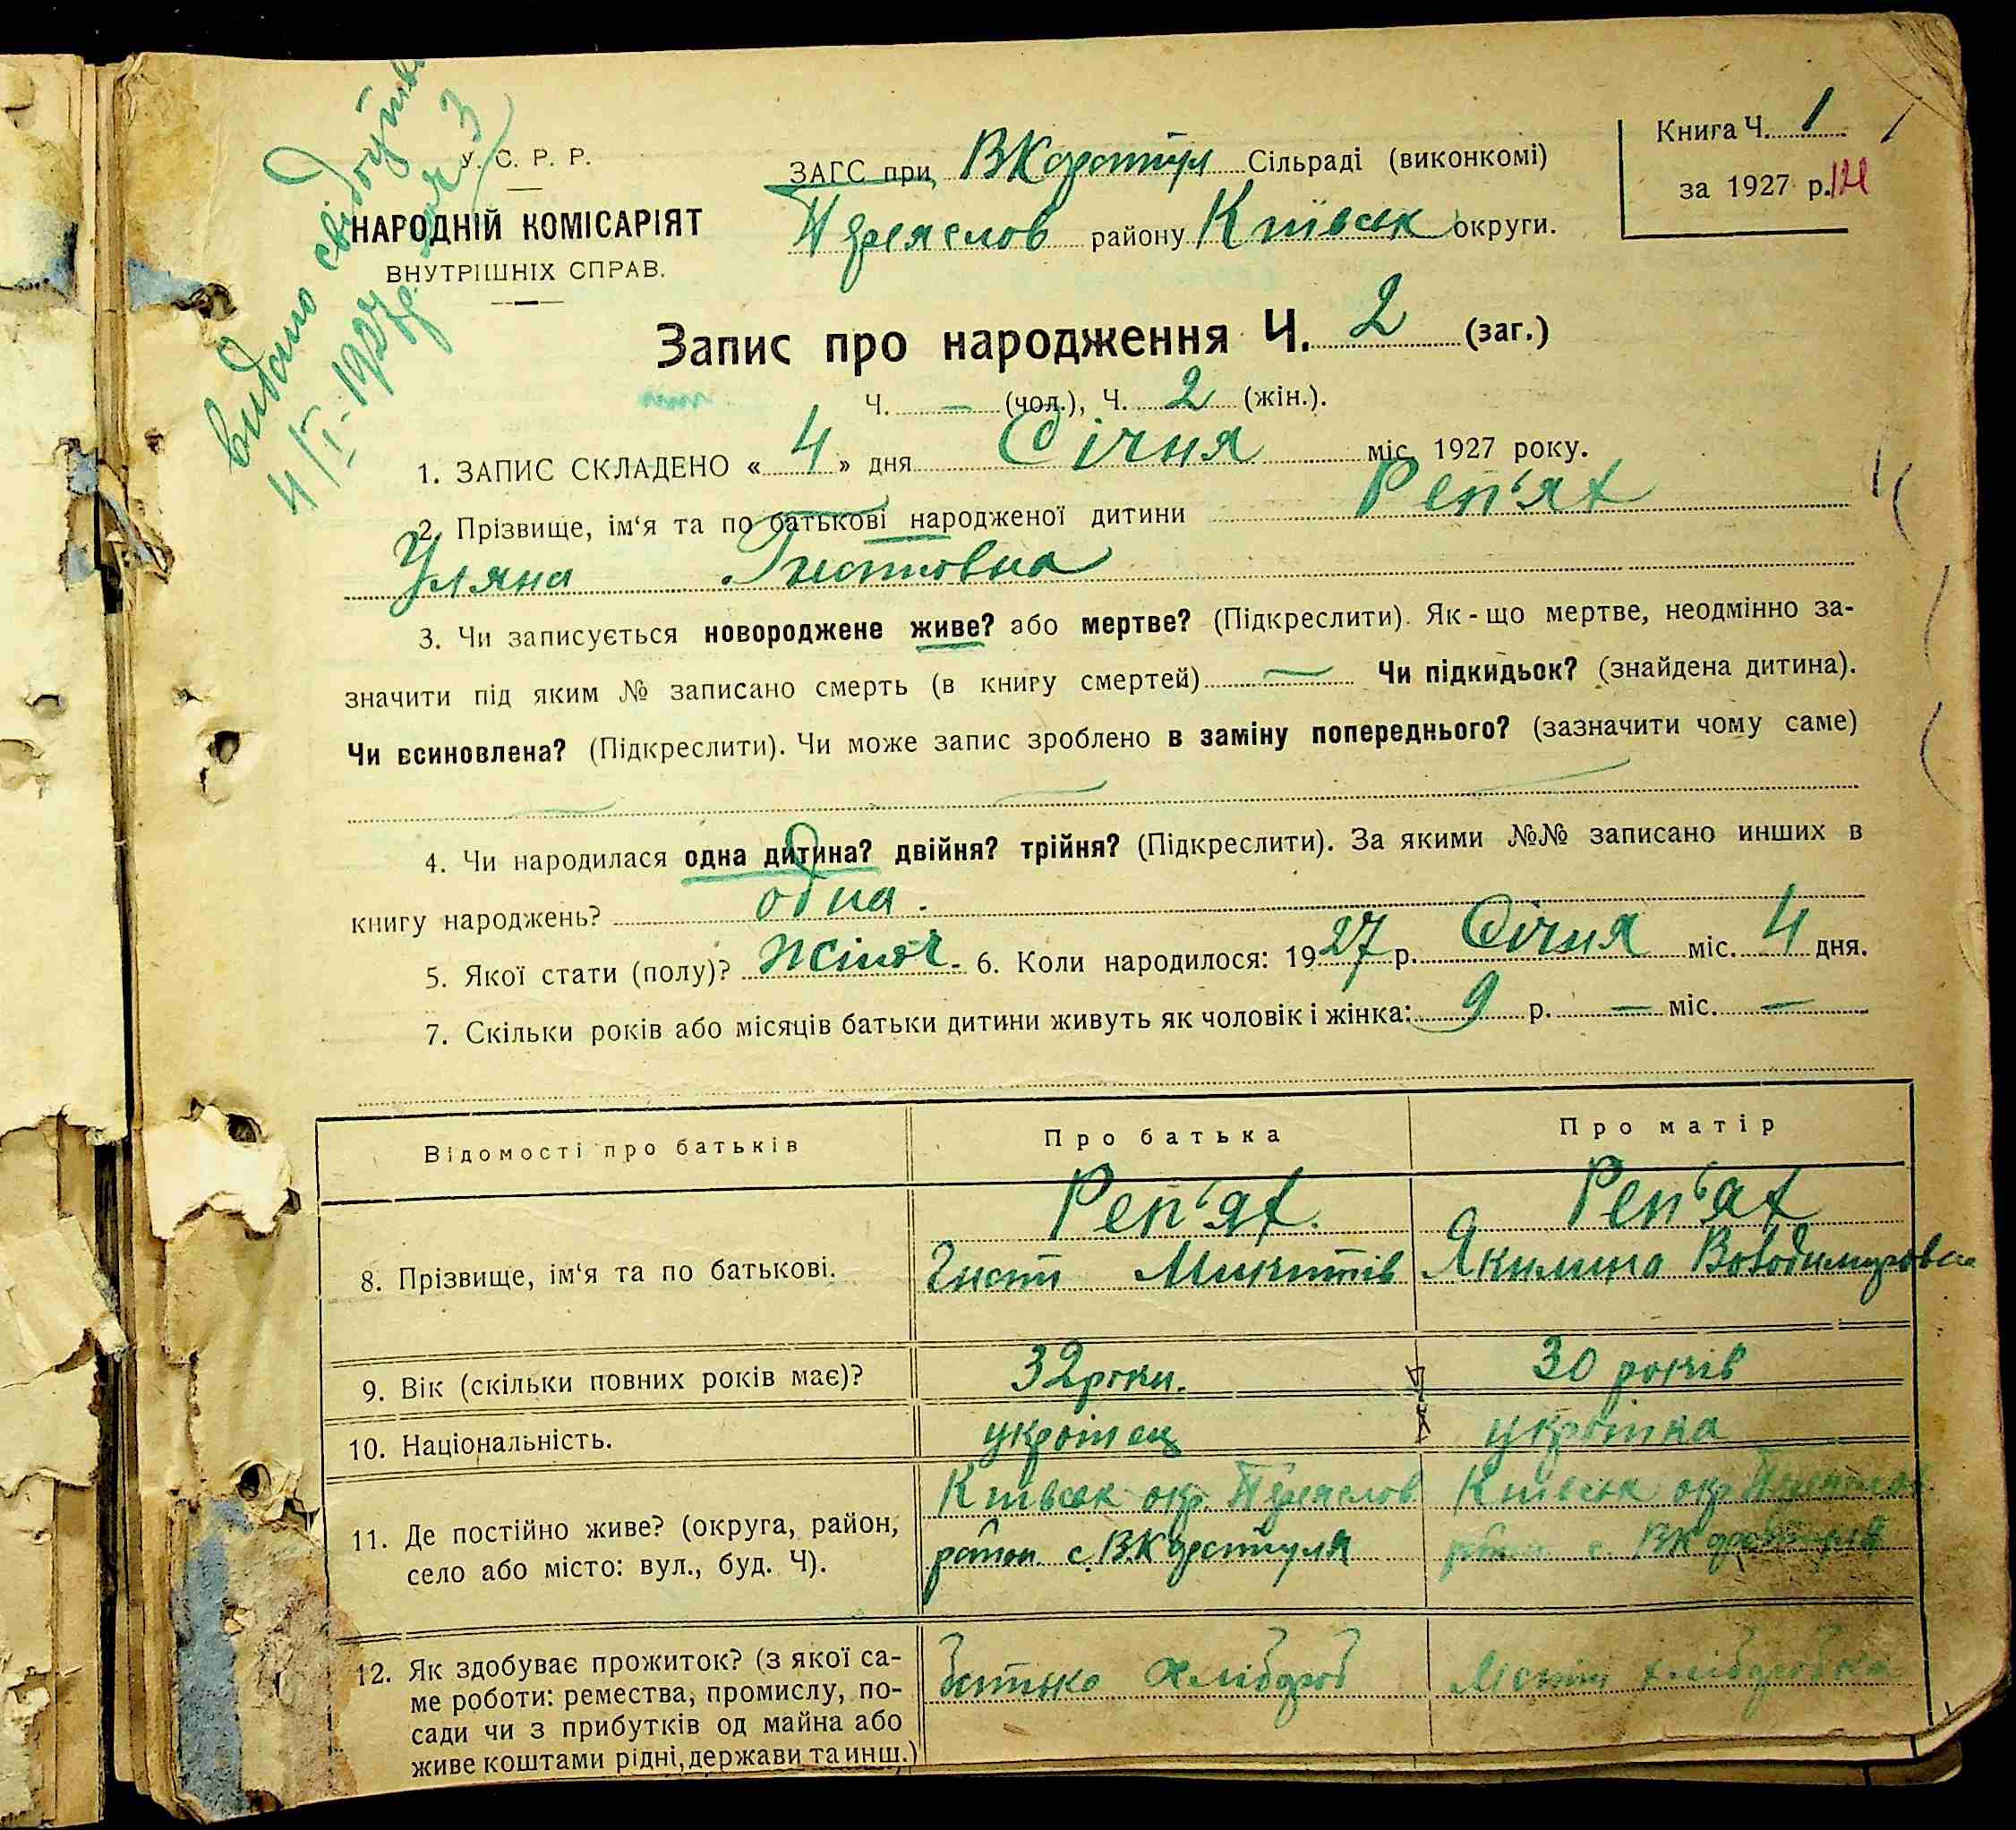 видано свідоцтво
4/I-1927 р. за ч 3
У. С. Р. Р.
НАРОДНІЙ КОМІСАРІЯТ
ВНУТРІШНІХ СПРАВ.
ЗАГС при ВКаратул Сільраді (виконкомі)
Переяслов району Київськ округи.
Книга Ч. 1
за 1927 р.
Запис про народження Ч. 2 (заг.)
Ч. — (чол.), Ч. 2 (жін.).
1. ЗАПИС СКЛАДЕНО « 4 » дня Січня міс. 1927 року.
2. Прізвище, ім‘я та по батькові народженої дитини Реп‘ях
Уляна Гнатовна
3. Чи записується новороджене живе? або мертве? (Підкреслити). Як-що мертве, неодмінно за-
значити під яким № записано смерть (в книгу смертей) — Чи підкидьок? (знайдена дитина).
Чи всиновлена? (Підкреслити). Чи може запис зроблено в заміну попереднього? (зазначити чому саме)
— — —
4. Чи народилася одна дитина? двійня? трійня? (Підкреслити). За якими №№ записано инших в
книгу народжень? одна.
5. Якої стати (полу)? жіноч. 6. Коли народилося: 1927 р. Січня міс. 4 дня.
7. Скільки років або місяців батьки дитини живуть як чоловік і жінка: 9 р. — міс. —
Відомості про батьків Про батька Про матір
8. Прізвище, ім‘я та по батькові.
Реп‘ях.
Гнат Микитів
Реп‘ях
Якилина Володимировна
9. Вік (скільки повних років має)? 32 роки. 30 років
10. Національність. українец українка
11. Де постійно живе? (округа, район,
село або місто: вул., буд. Ч).
Київськ окр. Переяслов
район с. ВКаратуля
Київськ окр. Переяслов
район с. ВКаратуля
12. Як здобуває прожиток? (з якої са-
ме роботи: ремества, промислу, по-
сади чи з прибутків од майна або
живе коштами рідні, держави та инш.)
батько хлібороб
Мати хліборобка